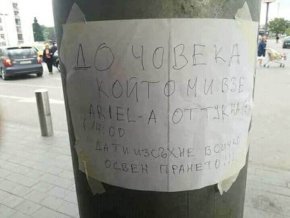 ДО ЧОВЕКА
КОЙТО МИ ВЗЕ
ARIEL-А ОТ ТУК НА
14:00
ДА ТИ ИЗСЪХНЕ ВСИЧКО
ОСВЕН ПРАНЕТО!!!